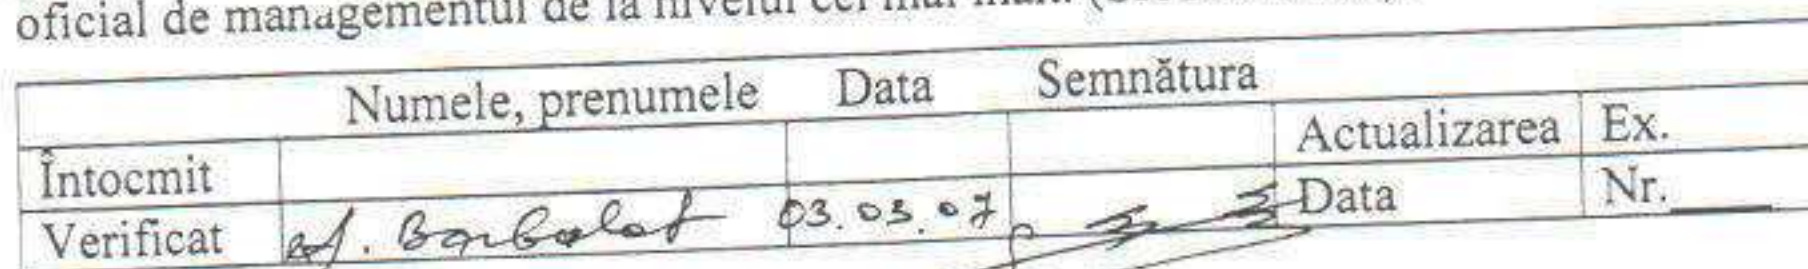 oficial de managementul de la nivelul cel mai
Numele, prenumele Data Semnătura
Întocmit Actualizarea Ex.
Verificat Barbalat 03.03.07 Data Nr.